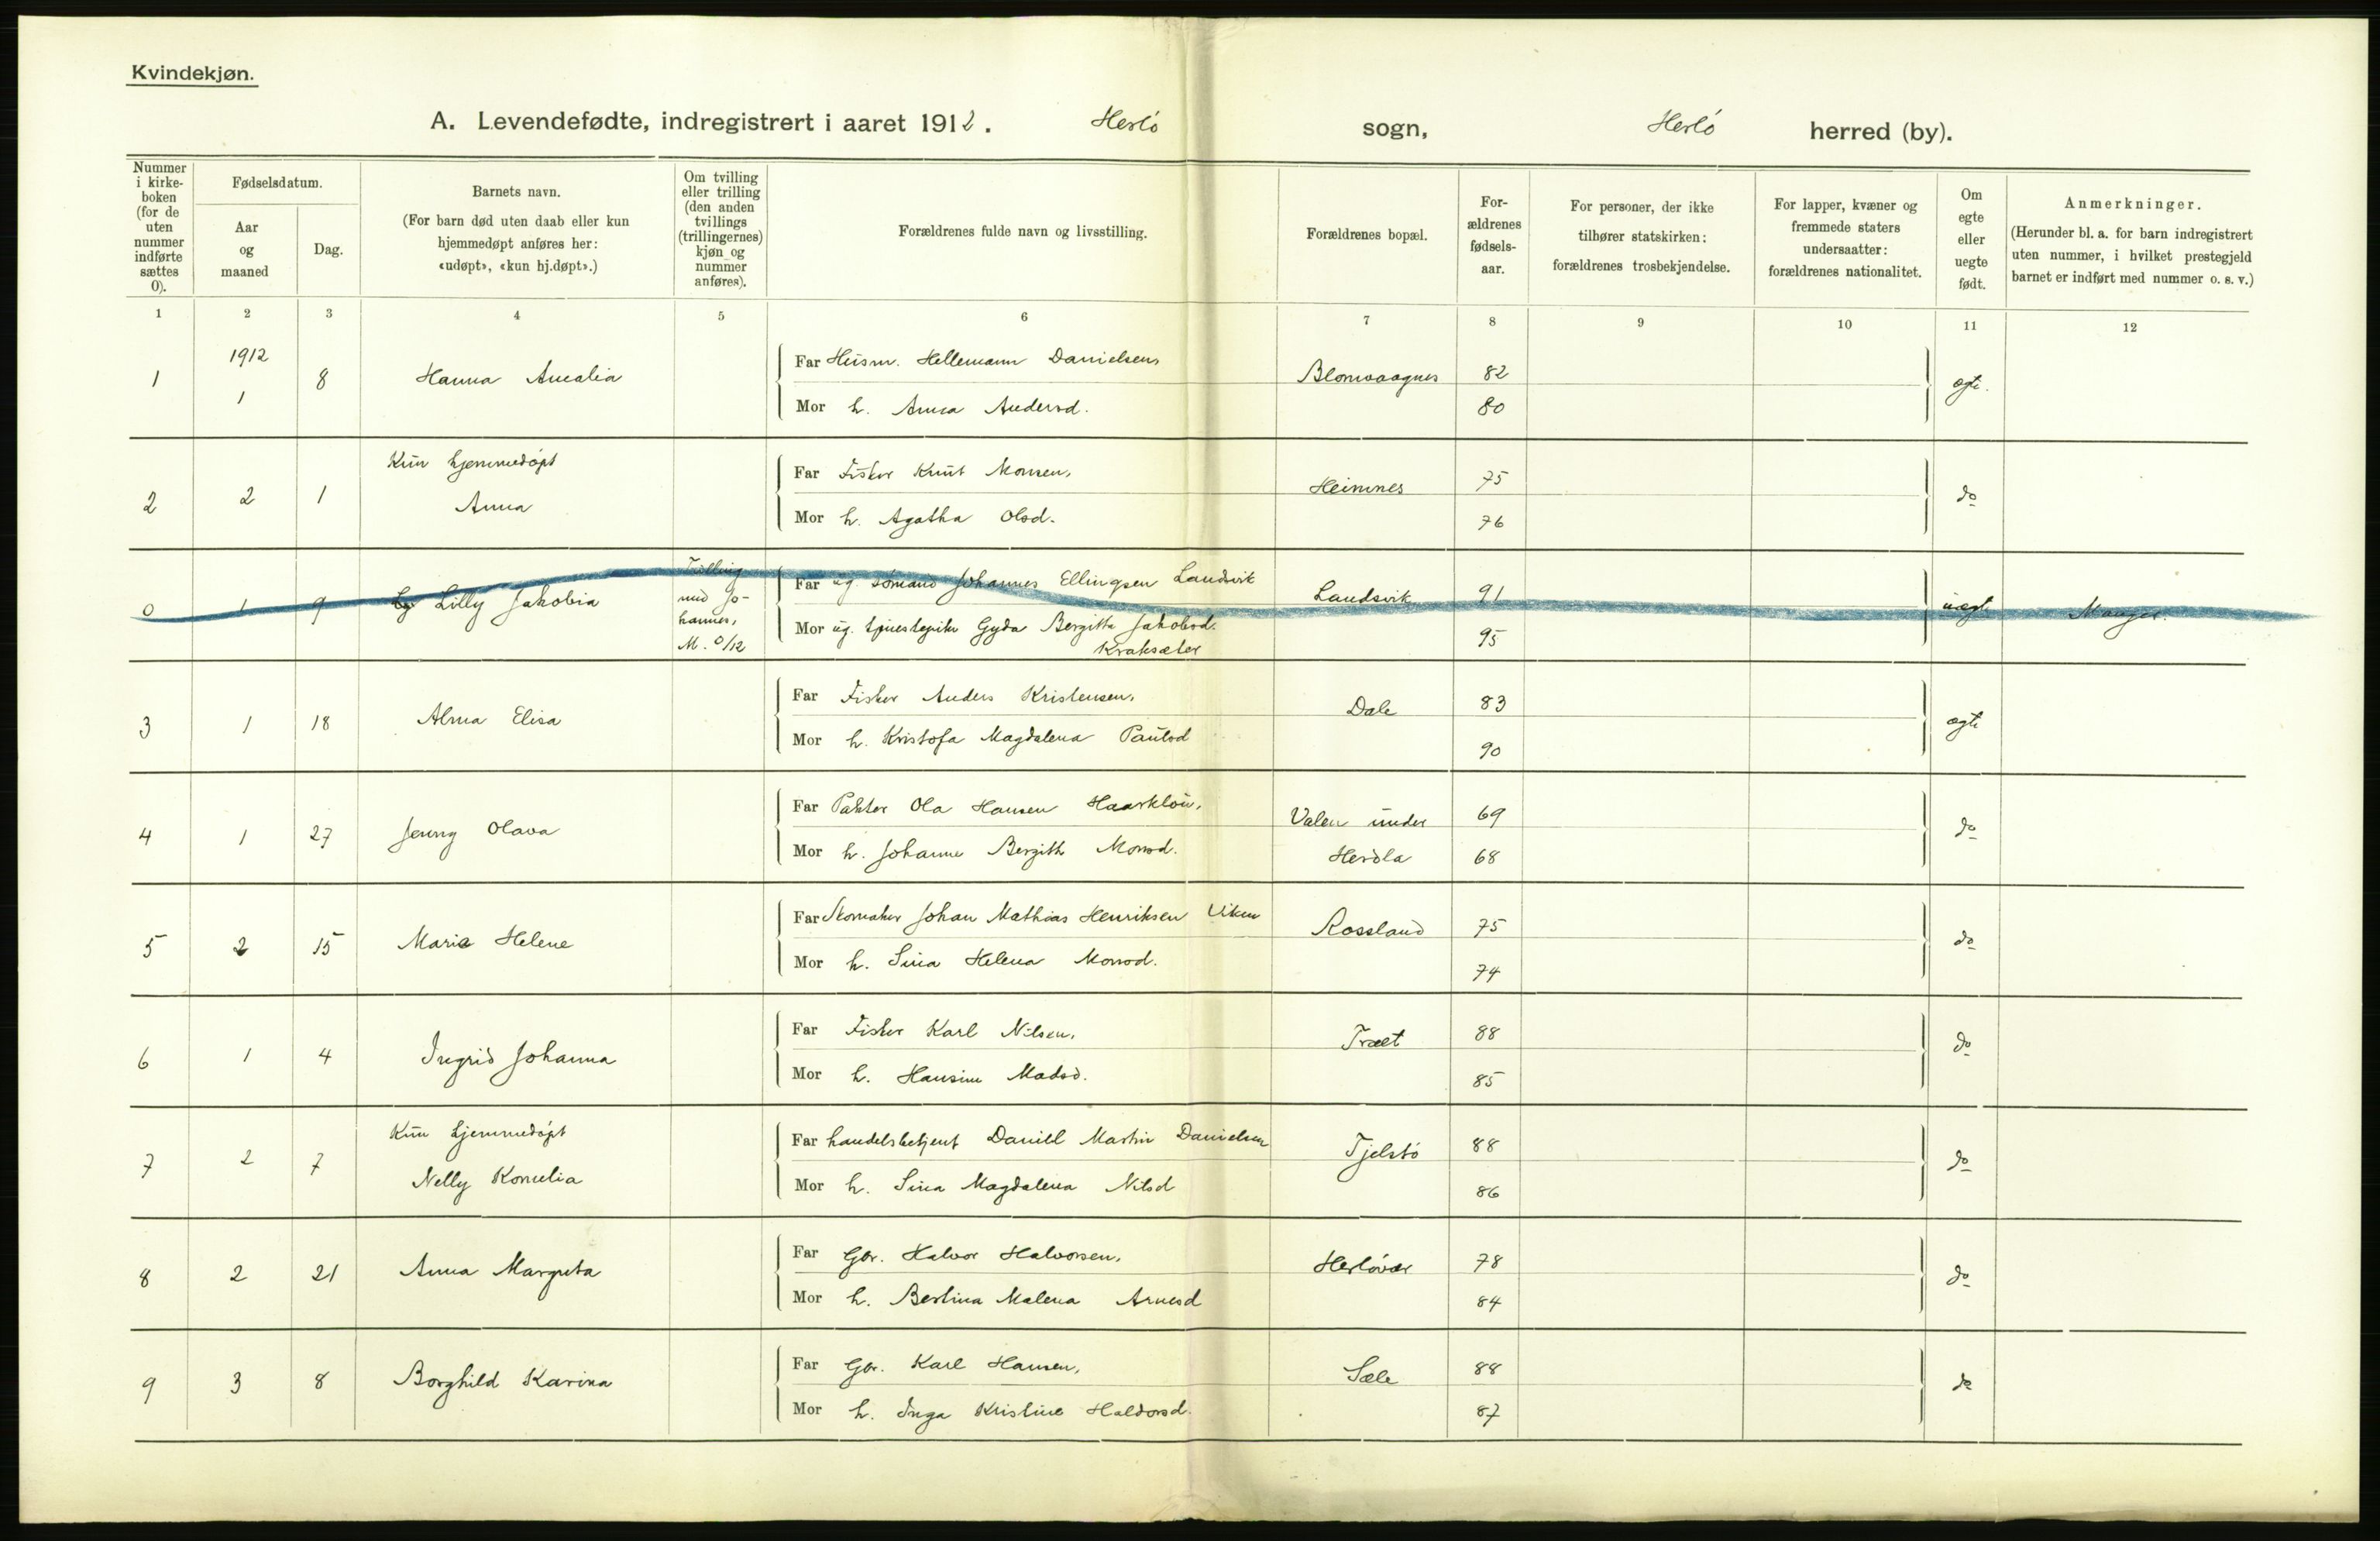 Kvindekjøn.
A. Levendefødte, indregistrert i aaret 1912. Herlö sogn, Herlö herred (by).
Nummer i kirke- boken (for de uten nummer indførte sættes 0).
Fødselsdatum.
Aar og maaned
Dag.
Barnets navn.
(For barn død uten daab eller kun hjemmedøpt anføres her: «udøpt», «kun hj.døpt».)
Om tvilling eller trilling (den anden tvillings (trillingernes) kjøn og nummer anføres).
Forældrenes fulde navn og livsstilling.
Forældrenes bopæl.
For- ældrenes fødsels- aar.
For personer, der ikke tilhører statskirken: forældrenes trosbekjendelse.
For lapper, kvæner og fremmede staters undersaatter: forældrenes nationalitet.
Om egte eller uegte født.
Anmerkninger.
(Herunder bl. a. for barn indregistrert uten nummer, i hvilket prestegjeld barnet er indført med nummer o. s. v.)
1 2 3 4 5 6 7 8 9 10 11 12
1912
1 1 8 Hanna Amalia
Far Husm. Hellemann Danielsen, Blomvaagnes 82 ægte.
Mor h. Anna Andersd. 80
Kun hjemmedöpt
2 2 1 Anna
Far Fisker Knut Monsen, Heimnes 75 do
Mor h. Agatha Olsd. 76
0 1 9 Lilly Jakobia
Tvilling med Jo- hannes, M. 0/12
Far ug. sömand Johannes Ellingsen Landsvik Landsvik 91 uægte Manger.
Mor ug. tjenestepike Gyda Bergitta Jakobsd. 95
Kraksæter
3 1 18 Alma Elisa
Far Fisker Anders Kristensen, Dale 83 ægte
Mor h. Kristofa Magdalena Paulsd 90
4 1 27 Jenny Olava
Far Pakter Ola Hansen Haarklou, Valen under 69 do
Mor h. Johanne Bergith Monsd. Herdla 68
5 2 15 Marie Helene
Far Skomaker Johan Mathias Henriksen Viken Rossland 75 do
Mor h. Sina Helena Monsd. 74
6 1 4 Ingrid Johanna
Far Fisker Karl Nilsen, Træt 88 do
Mor h. Hansine Madsd. 85
Kun hjemmedöpt
7 2 7 Nelly Kornelia
Far handelsbetjent Daniel Martin Danielsen Tjelstö 88 do
Mor h. Sina Magdalena Nilsd 86
8 2 21 Anna Margreta
Far Gbr. Halvor Halvorsen, Herlövær 78 do
Mor h. Bertina Malena Arnesd 84
9 3 8 Borghild Karina
Far Gbr. Karl Hansen, Sæle 88 do
Mor h. Inga Kristine Haldorsd. 87